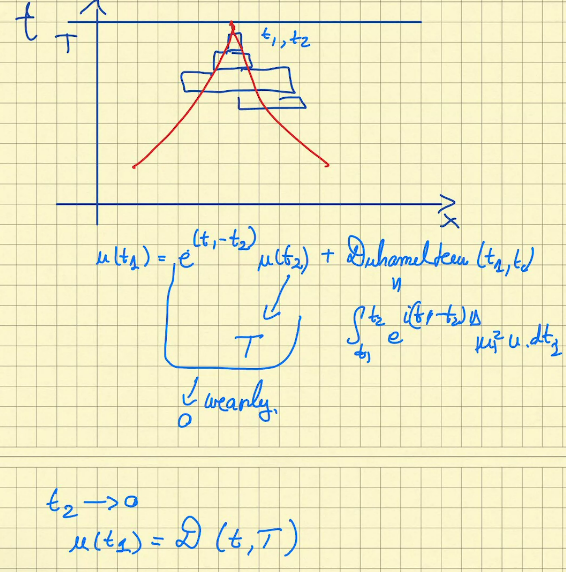 t
T
t₁, t₂
x
u(t₁) = e^(t₁-t₂) u(t₂) + Duhamelterm (t₁, t₂)
"
T
∫_{t₁}^{t₂} e^{i(t₁-t₂)Δ} |u|² u. dt₂
0 weakly.
t₂ → 0
u(t₁) = D (t, T)